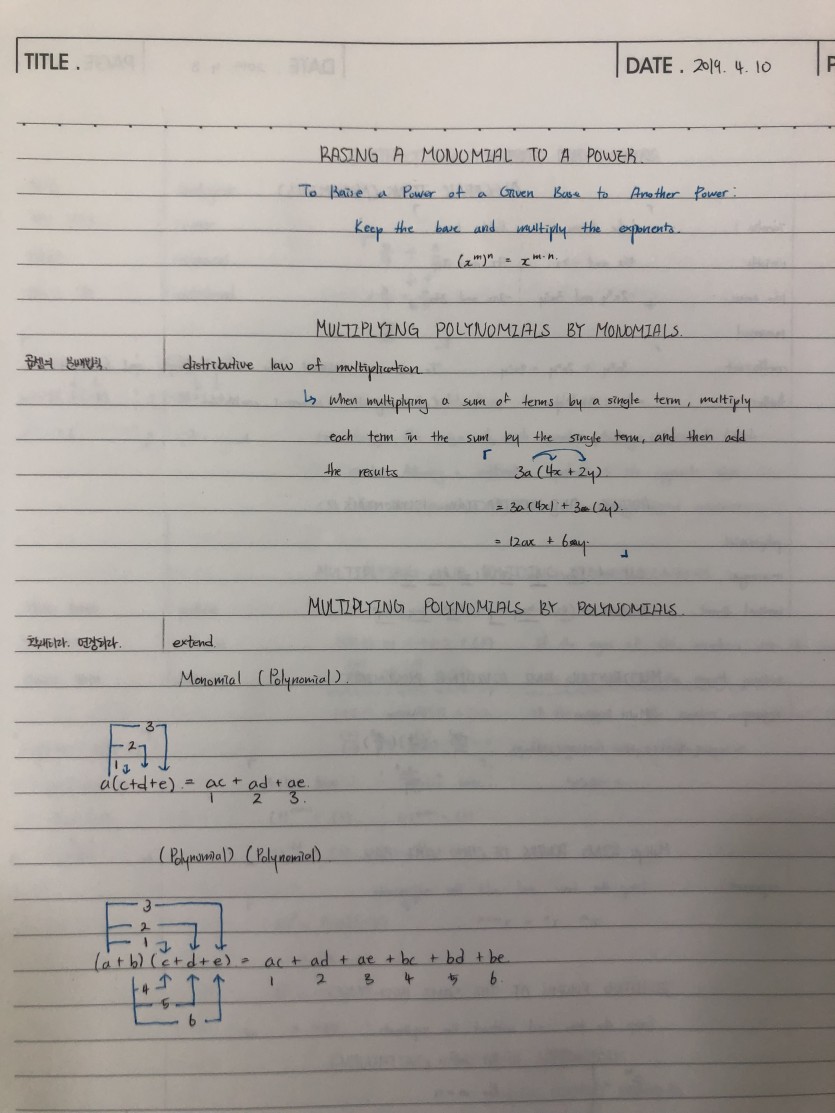 TITLE .
DATE . 2019. 4. 10
P
RASING A MONOMIAL TO A POWER.
To Raise a Power of a Given Base to Another Power:
Keep the base and multiply the exponents.
(x^m)^n = x^m·n.
MULTIPLYING POLYNOMIALS BY MONOMIALS.
곱셈의 분배법칙 distributive law of multiplication
↳ When multiplying a sum of terms by a single term, multiply
each term in the sum by the single term, and then add
the results 3a(4x+2y)
= 3a(4x) + 3a(2y).
= 12ax + 6ay.
MULTIPLYING POLYNOMIALS BY POLYNOMIALS.
확대되다. 연장되다. extend.
Monomial (Polynomial).
3
2
1
a(c+d+e) = ac + ad + ae.
1 2 3.
(Polynomial) (Polynomial).
3
2
1
(a+b)(c+d+e) = ac + ad + ae + bc + bd + be.
1 2 3 4 5 6.
4
5
6